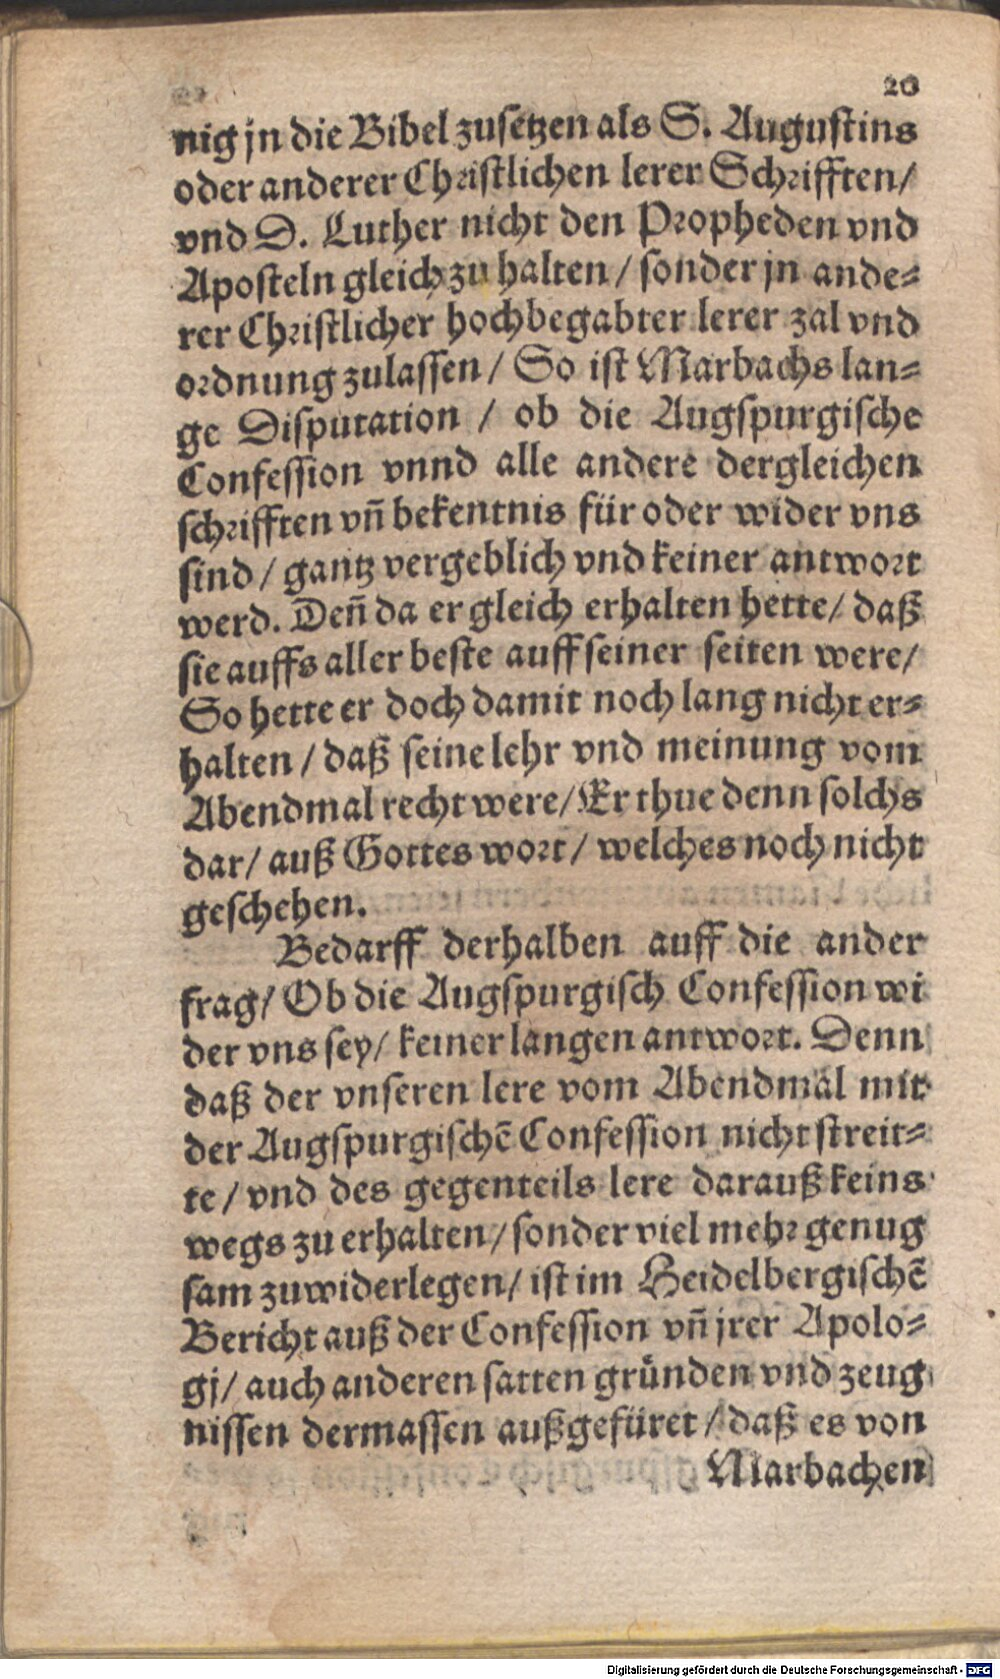 20
nig jn die Bibel zusetzen als S. Augustins
oder anderer Christlichen lerer Schrifften/
vnd D. Luther nicht den Propheden vnd
Aposteln gleich zu halten / sonder jn ande⸗
rer Christlicher hochbegabter lerer zal vnd
ordnung zulassen / So ist Marbachs lan⸗
ge Disputation / ob die Augspurgische
Confession vnnd alle andere dergleichen
schrifften vn̄ bekentnis für oder wider vns
sind / gantz vergeblich vnd keiner antwort
werd. Den̄ da er gleich erhalten hette / daß
sie auffs aller beste auff seiner seiten were/
So hette er doch damit noch lang nicht er⸗
halten / daß seine lehr vnd meinung vom
Abendmal recht were/ Er thue denn solchs
dar/ auß Gottes wort/ welches noch nicht
geschehen.
Bedarff derhalben auff die ander
frag/ Ob die Augspurgisch Confession wi
der vns sey/ keiner langen antwort. Denn
daß der vnseren lere vom Abendmal mit
der Augspurgischē Confession nicht streit⸗
te / vnd des gegenteils lere darauß keins
wegs zu erhalten/ sonder viel mehr genug
sam zuwiderlegen/ ist im Heidelbergischē
Bericht auß der Confession vn̄ jrer Apolo⸗
gj/ auch anderen satten gründen vnd zeug
nissen dermassen außgefüret / daß es von
Marbachen
Digitalisierung gefördert durch die Deutsche Forschungsgemeinschaft - DFG